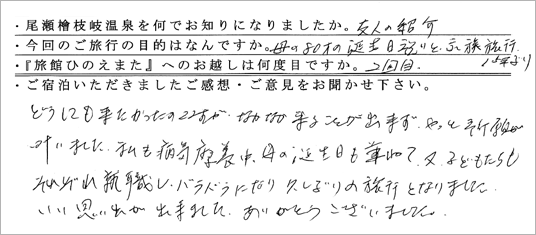 ・尾瀬檜枝岐温泉を何でお知りになりましたか。友人の紹介
・今回のご旅行の目的はなんですか。母の80才の誕生日祝いと、家族旅行
15年ぶり
・『旅館ひのえまた』へのお越しは何度目ですか。2回目
・ご宿泊いただきましたご感想・ご意見をお聞かせ下さい。
どうしても来たかったのですが、なかなか来ることが出来ず、やっと念願が
叶いました。私も病気療養中、母の誕生日も兼ねて、又、子どもたちも
それぞれ就職し、バラバラになり久しぶりの旅行となりました。
いい思い出が出来ました。ありがとうございました。